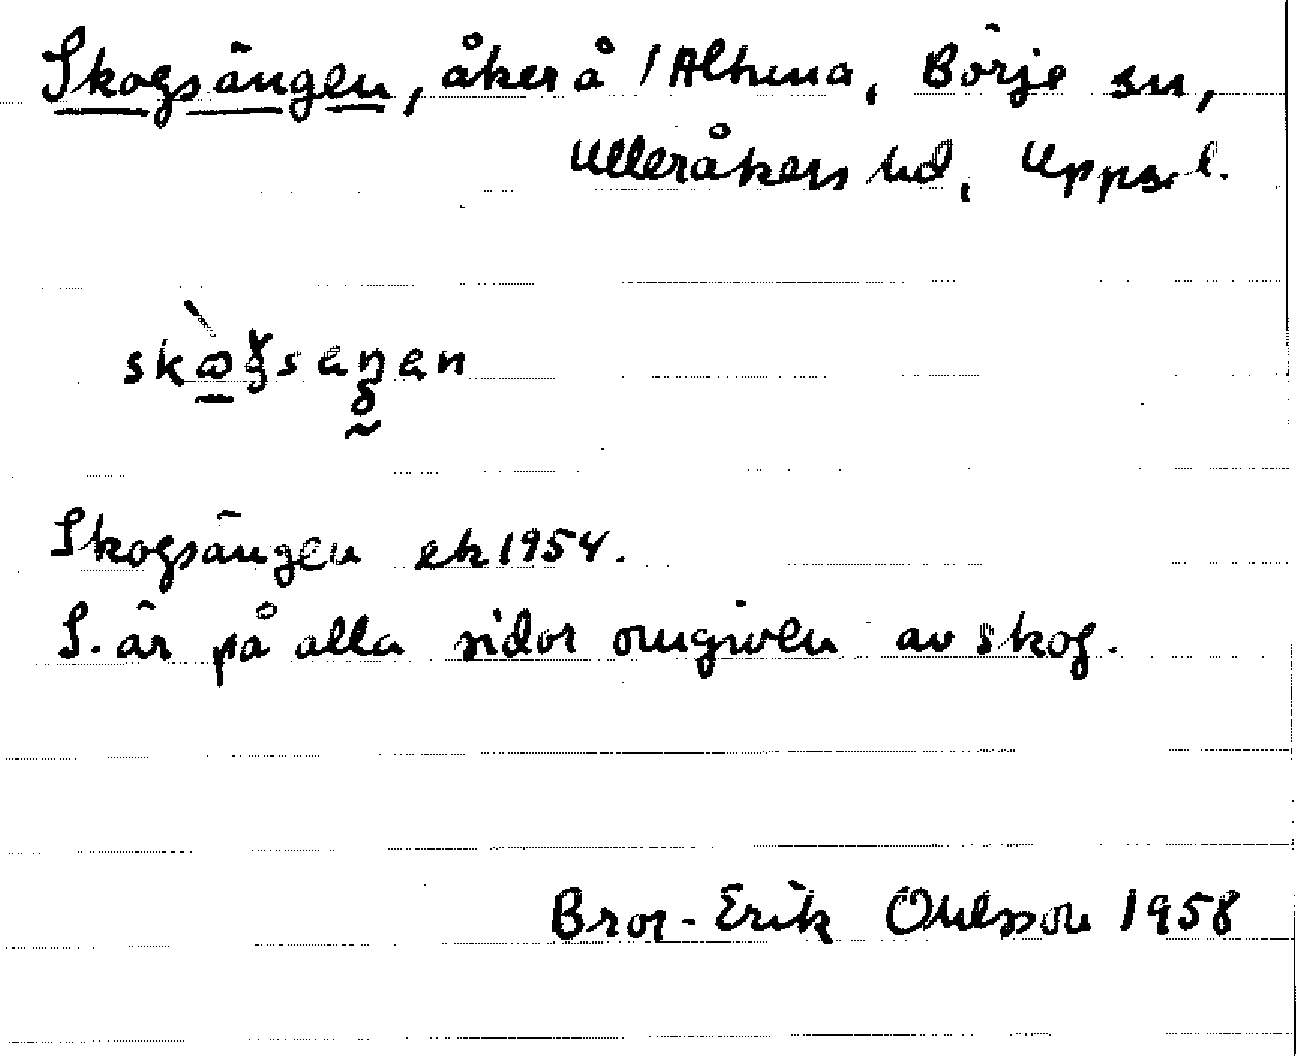 Skogsängen, åker å 1 Altuna, Börje sn,
Ulleråkers hd, Uppsl.
Skogsängen ek 1954.
S. är på alla sidor omgiven av skog.
Bror-Erik Ohlsson 1958